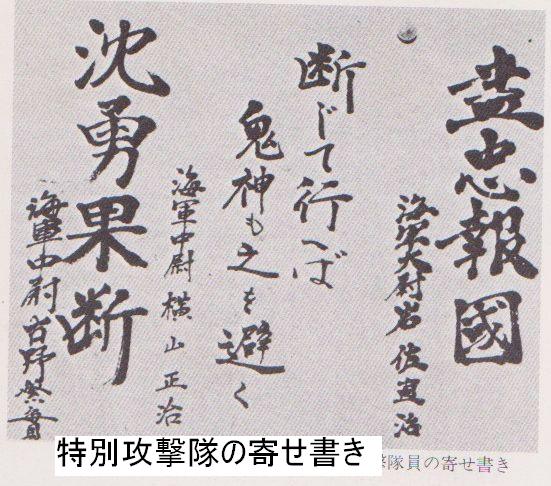 盡忠報國
海軍大尉岩佐直治
断じて行へば
鬼神も之を避く
海軍中尉 横山正治
沈勇果断
海軍中尉 古野繁實
特別攻撃隊の寄せ書き
隊員の寄せ書き